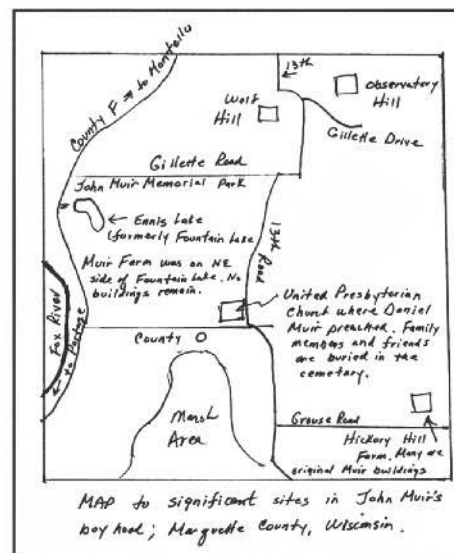 County F → to Montello
13th
Wolf
Hill
Observatory
Hill
Gillette Drive
Gillette Road
John Muir Memorial Park
← Ennis Lake
(formerly Fountain Lake
Muir Farm was on NE
side of Fountain Lake. No
buildings remain.
13th Road
Fox River
← to Portage
United Presbyterian
Church where Daniel
Muir preached. Family
members and friends
are buried in the
cemetary.
County O
Marsh
Area
Grouse Road
Hickory Hill
Farm. Many are
original Muir buildings
MAP to significant sites in John Muir's
boy hood; Marquette County, Wisconsin.